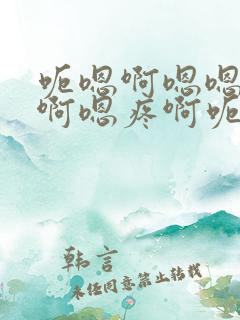 呃嗯啊嗯嗯
啊嗯疼啊呃
韩言
未经同意禁止转载